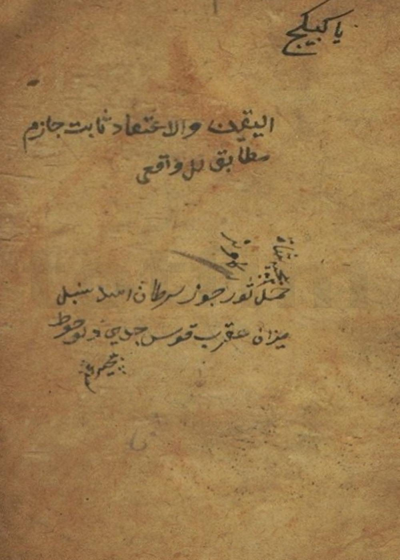 يا كبيكج
اليقين والاعتقاد ثابت جازم
مطابق للواقعى
حمل ثور جوز سرطان اسد سنبل
ميزان عقرب قوس جدي دلو حوط